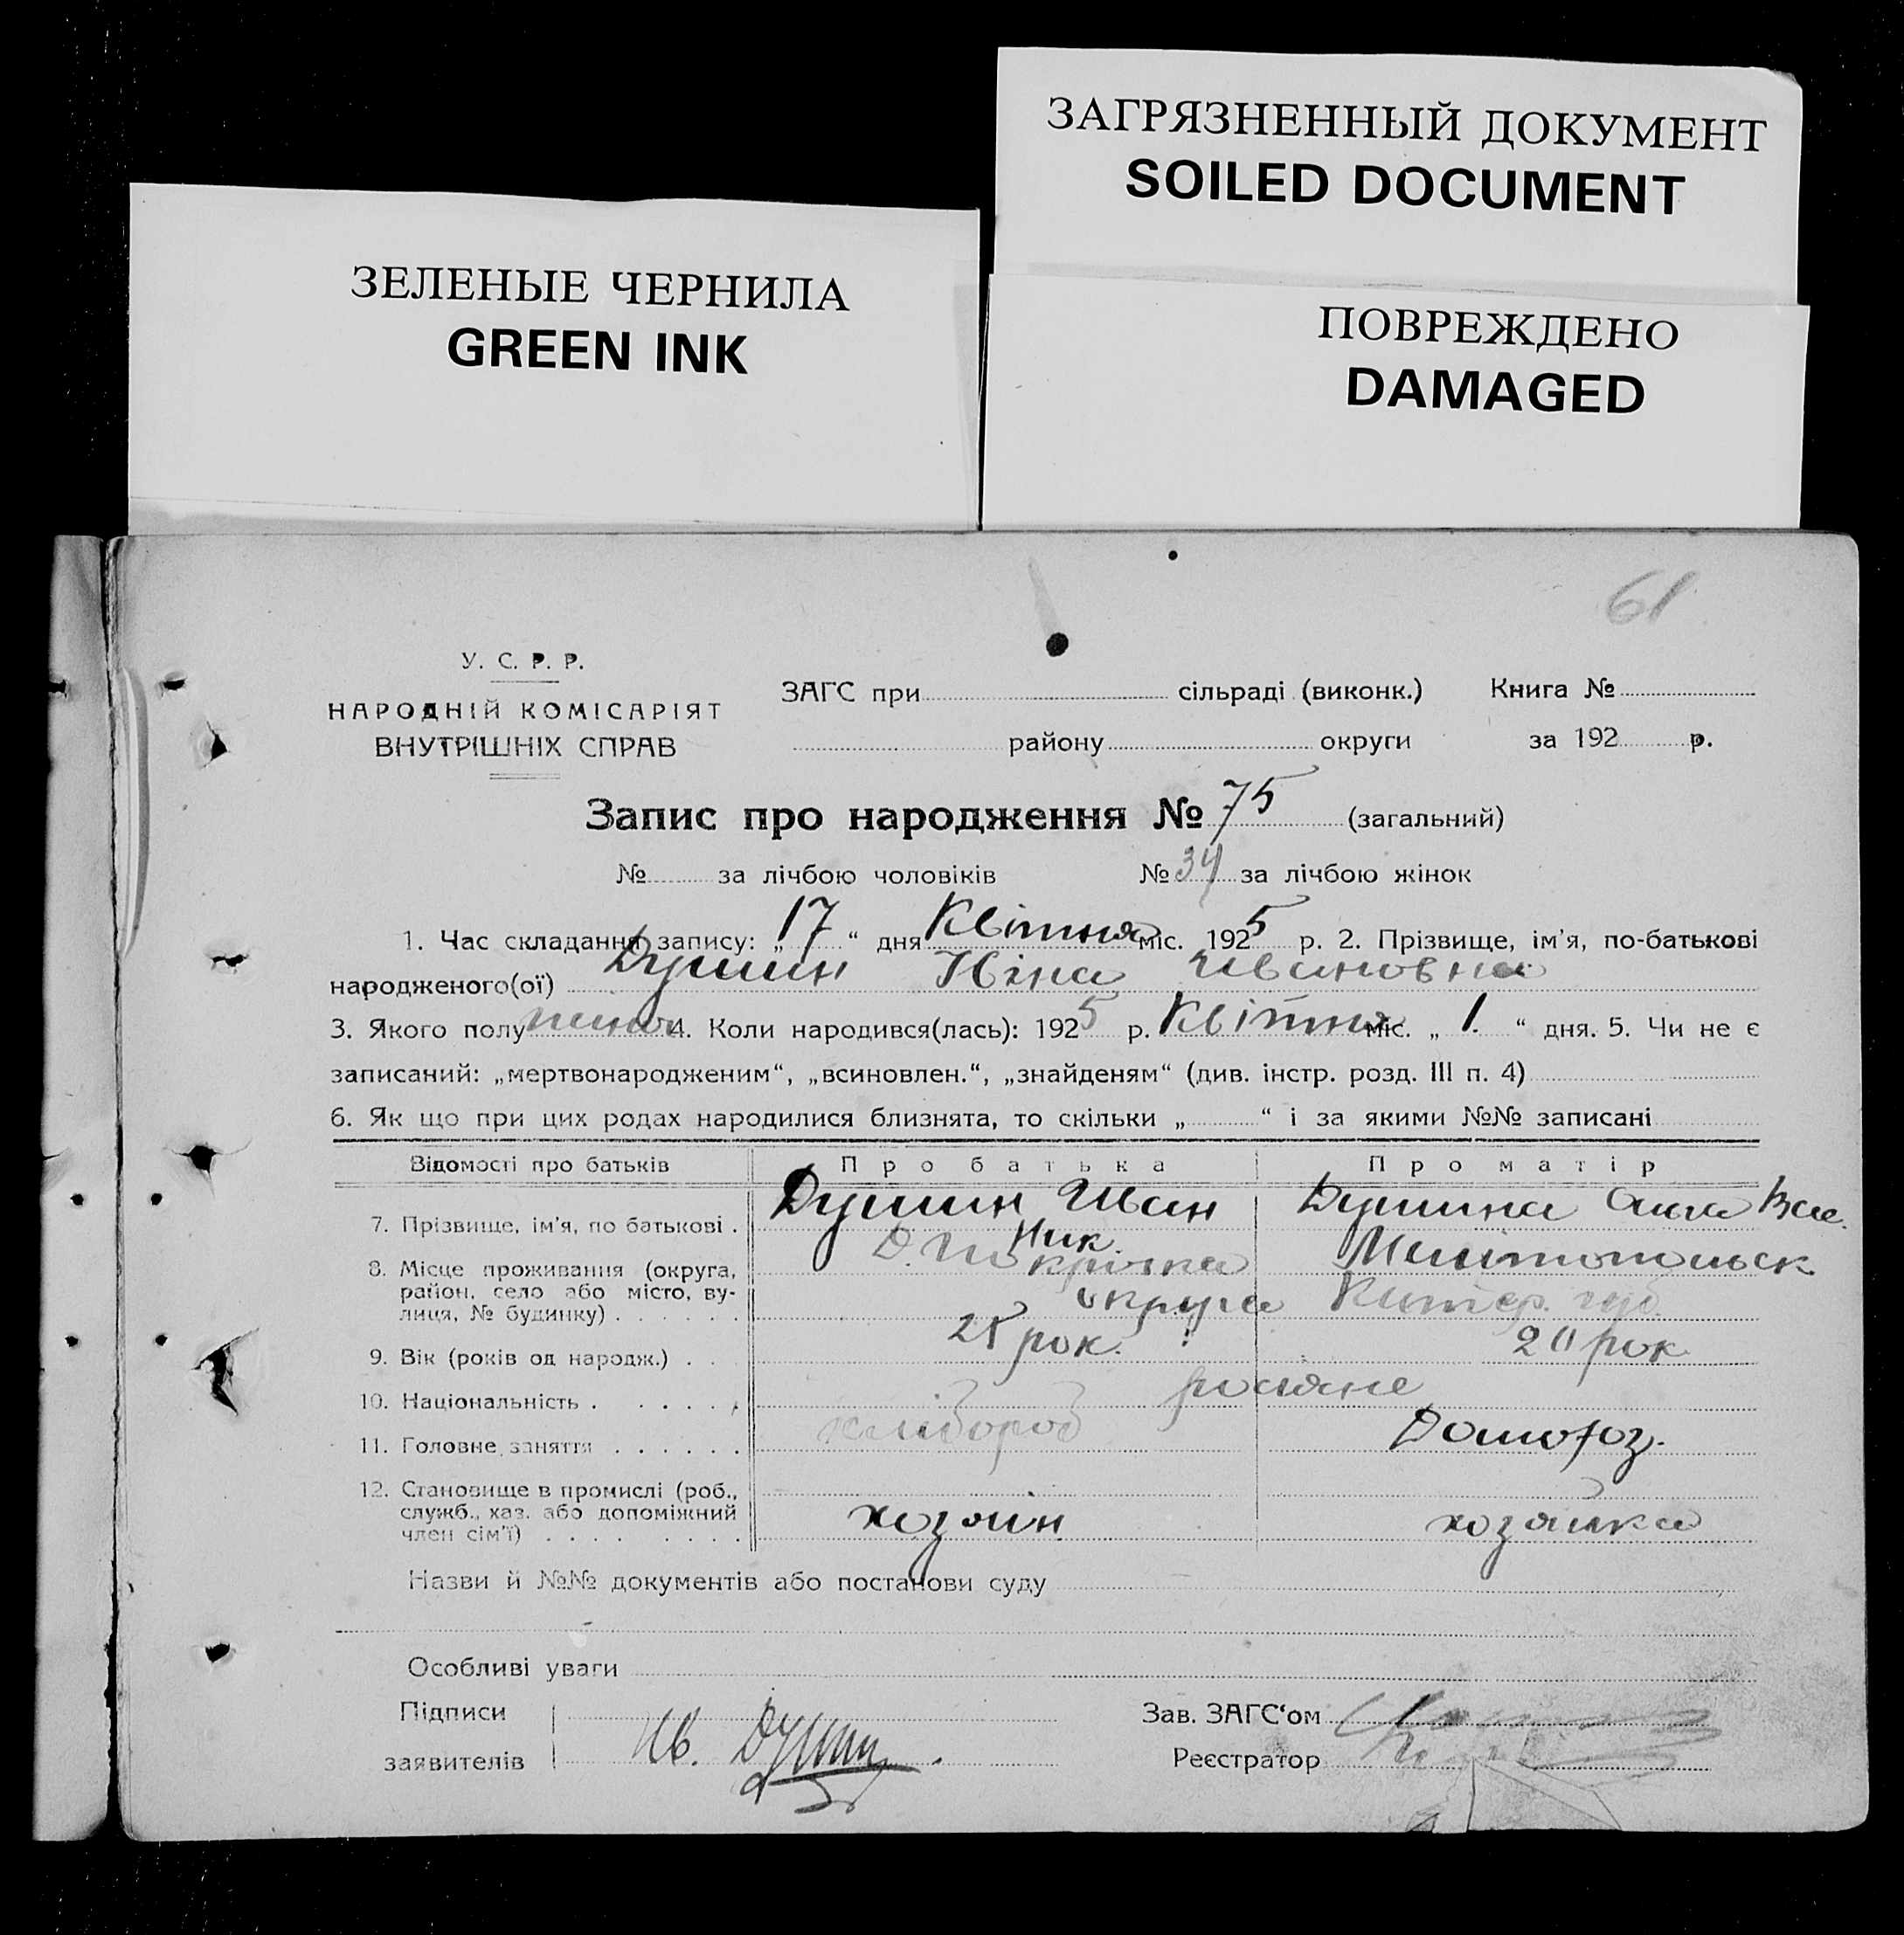 ЗАГРЯЗНЕННЫЙ ДОКУМЕНТ
SOILED DOCUMENT
ЗЕЛЕНЫЕ ЧЕРНИЛА
GREEN INK
ПОВРЕЖДЕНО
DAMAGED
61
У. С. Р. Р.
НАРОДНІЙ КОМІСАРІЯТ
ВНУТРІШНІХ СПРАВ
ЗАГС при сільраді (виконк.) Книга №
району округи за 192 р.
Запис про народження № 75 (загальний)
№ за лічбою чоловіків № 34 за лічбою жінок
1. Час складання запису: „17“ дня Квітня міс. 1925 р. 2. Прізвище, ім’я, по-батькові
народженого(ої) Душин Ніна Ивановна
3. Якого полу 4. Коли народився(лась): 1925 р. Квітня міс. „1.“ дня. 5. Чи не є
записаний: „мертвонародженим“, „всиновлен.“, „знайденям“ (див. інстр. розд. III п. 4)
6. Як що при цих родах народилися близнята, то скільки „ “ і за якими №№ записані
Відомості про батьків Про батька Про матір
7. Прізвище, ім’я, по батькові . Душин Иван Ник. Душина Анна Вас.
8. Місце проживання (округа, район, село або місто, вулиця, № будинку) . . . . . . Д. Покровка Мелітопольск
округа Катер. губ.
9. Вік (років од народж.) . . 25 рок. 20 рок
10. Національність . . . . . . росіяне
11. Головне заняття . . . . . . хлібороб Домогоз.
12. Становище в промислі (роб., служб., хаз. або допоміжний член сім’ї) . . . . . . . . хозяін хозяйка
Назви й №№ документів або постанови суду
Особливі уваги
Підписи
заявителів Ив. Душин
Зав. ЗАГС‘ом
Реєстратор